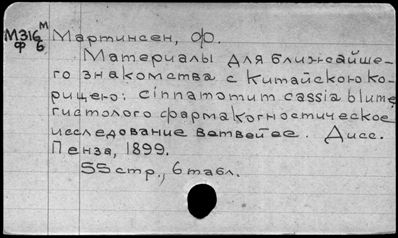 М316 м Мартинсен, Ф.
ф б
Материалы для ближсайше-
го знакомства с китайского ко-
рицею: cinnamomum cassia blume,
гистолого фармакогностическое
исследование ветвей ее. Дисс.
Пенза, 1899.
55 стр., 6 табл.